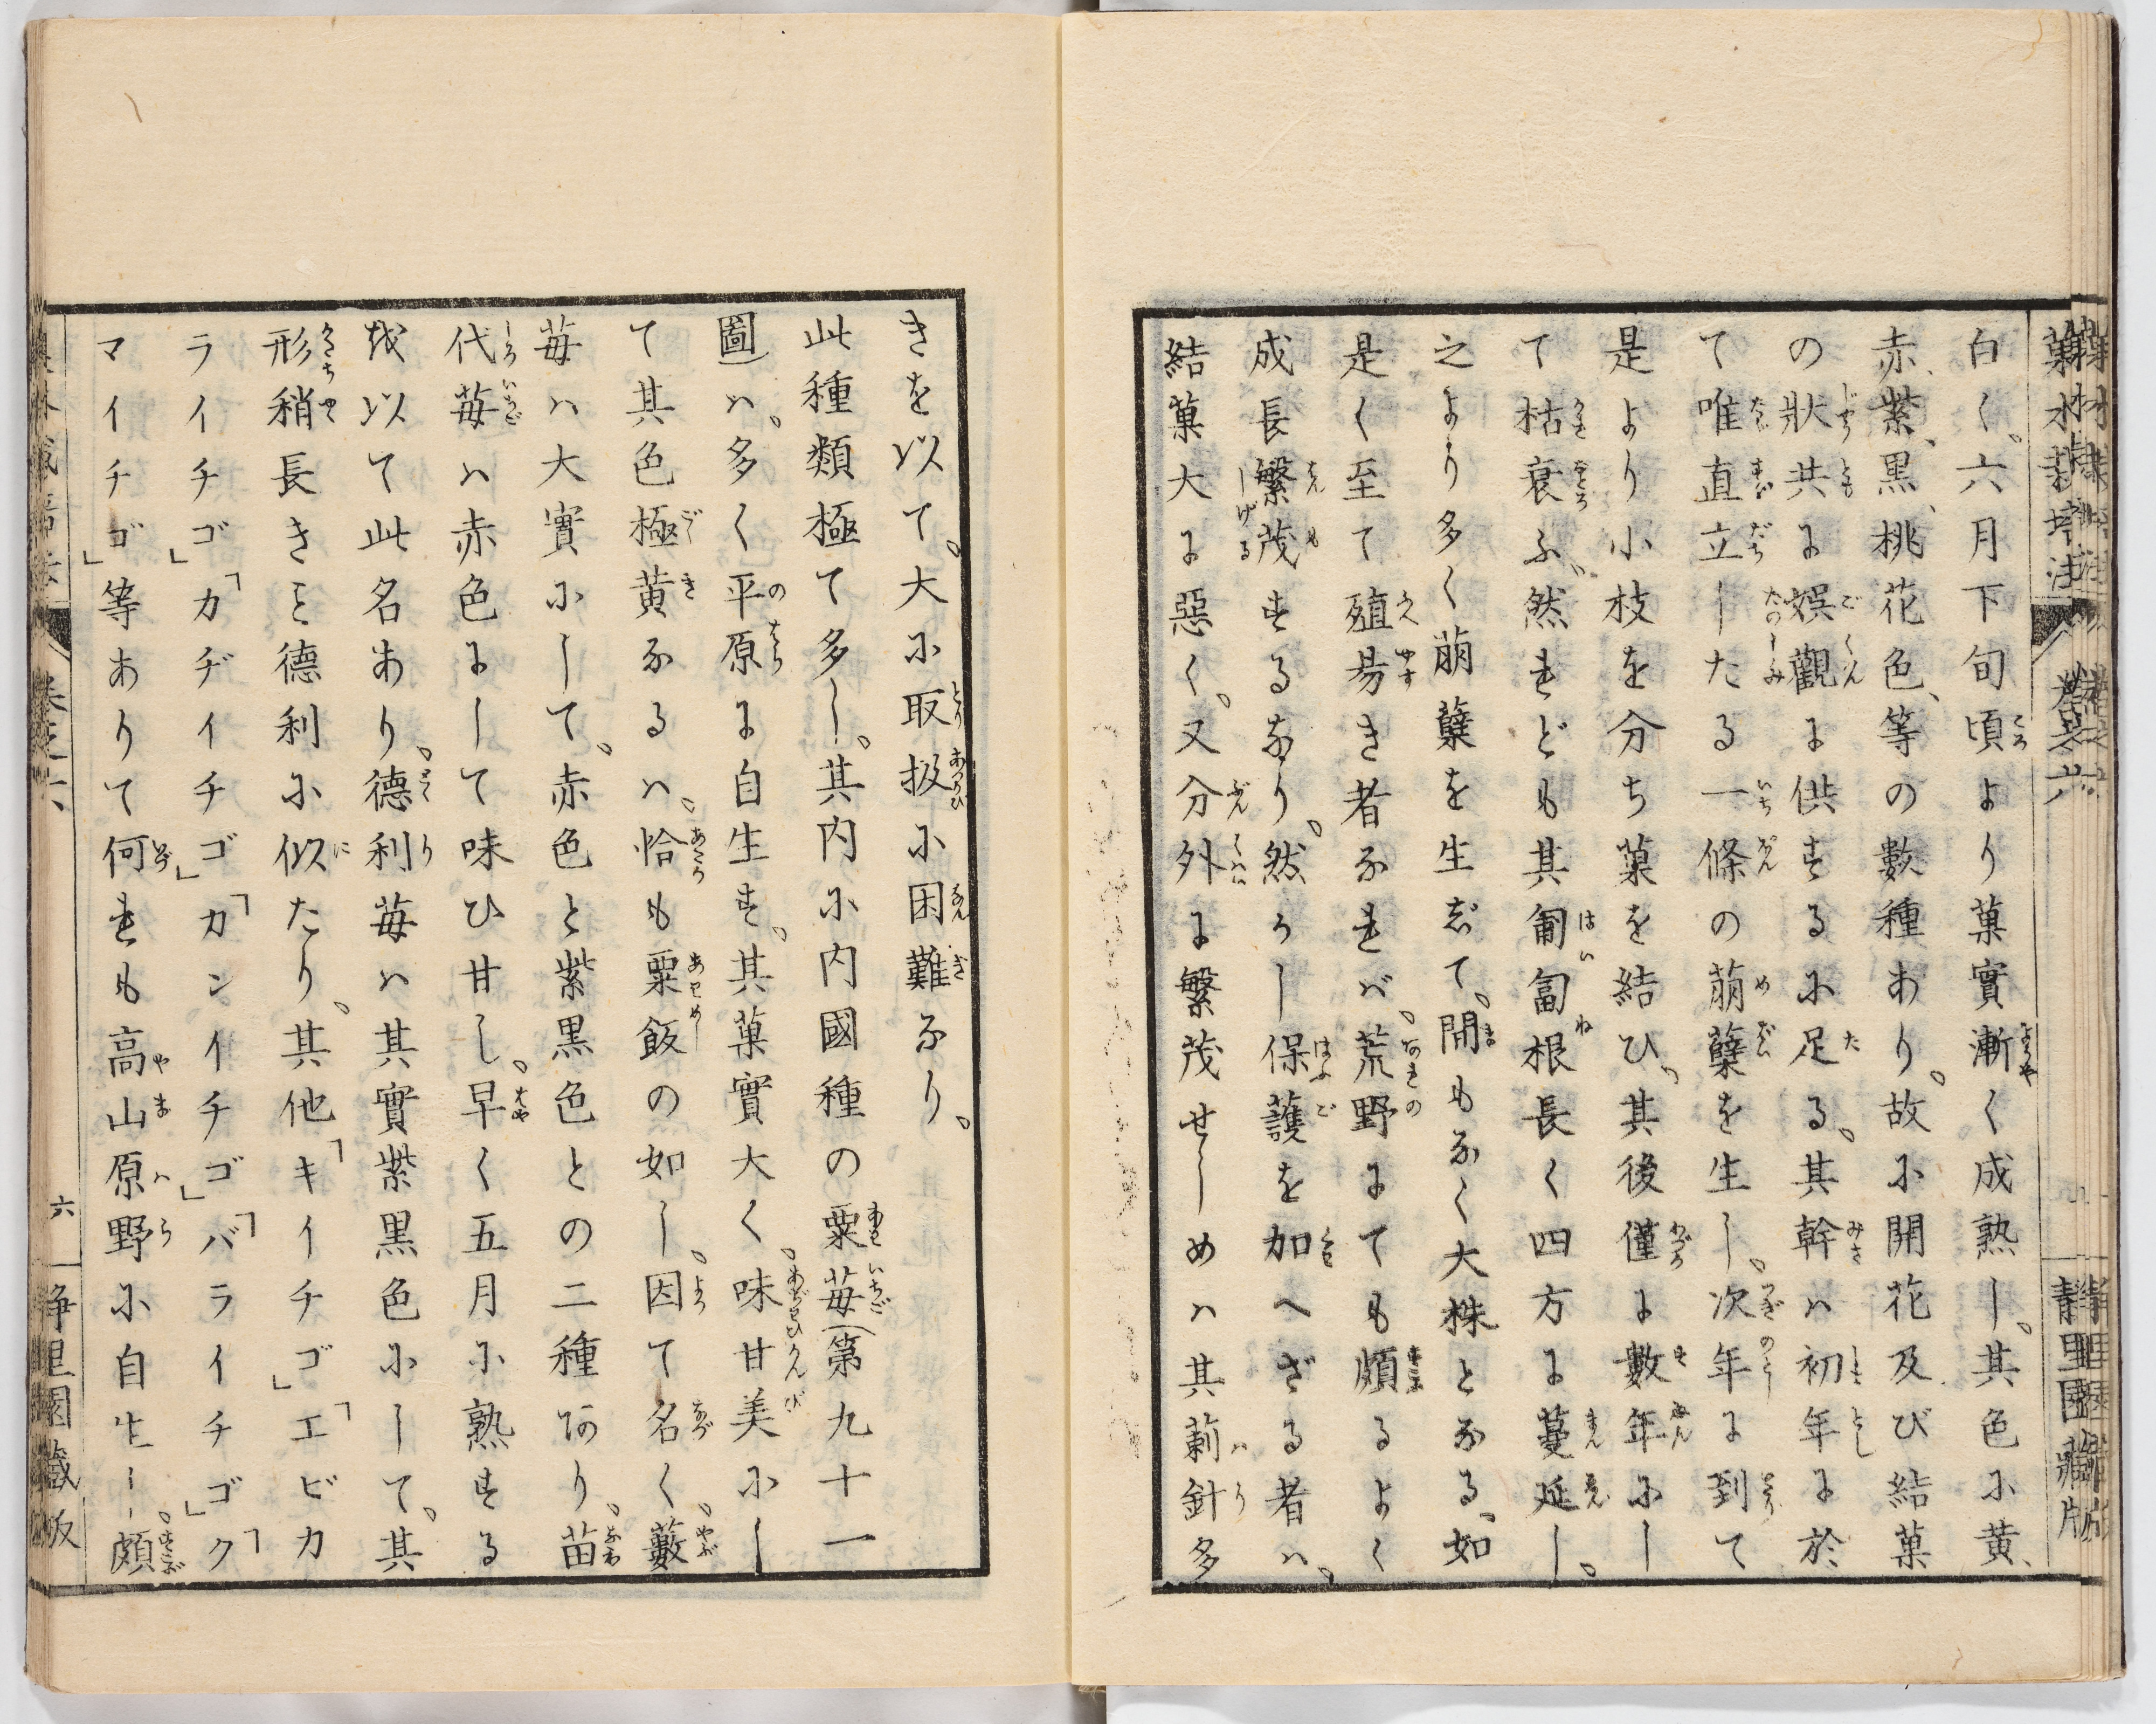 白く、六月下旬頃より菓實漸く成熟し、其色に黄、
赤、紫、黒、桃花色、等の數種あり、故に開花及び結菓
の狀共に娯觀に供するに足る、其幹ハ初年に於
て唯直立したる一條の萠蘖を生し、次年に到て
是より小枝を分ち菓を結ひ、其後僅に數年にし
て枯衰ふ、然れども其匍匐根長く四方に蔓延し、
之より多く萠蘖を生じて、間もなく大株となる、如
是く至て殖昜き者なれバ、荒野にても頗るよく
成長繁茂するなり、然うし保護を加へざる者ハ、
結菓大に惡く、又分外に繁茂せしめハ其莿針多
きを以て、大に取扱に困難なり、
此種類極て多し、其内に内國種の粟苺(第九十一
圖)ハ、多く平原に自生す、其菓實大く、味甘美にし
て其色極黄なるハ、恰も粟飯の如し、因て名く、藪
苺ハ大實にして、赤色と紫黒色との二種あり、苗
代苺ハ赤色にして味ひ甘し、早く五月に熟する
を以て此名あり、德利苺ハ其實紫黒色にして、其
形稍長きこと德利に似たり、其他「キイチゴ」「エビカ
ライチゴ」「カヂイチゴ」「カンイチゴ」「バライチゴ」「ク
マイチゴ」等ありて何れも高山原野に自生し、頗
六